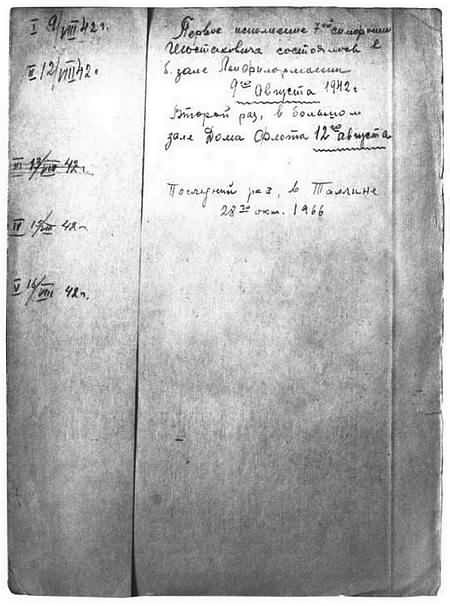 I 9/VIII 42 г.
II 12/VIII 42 г.
III 13/VIII 42 г.
IV 15/VIII 42 г.
V 16/VIII 42 г.
Первое исполнение 7ой симфонии
Шостаковича состоялось в
б. зале Ленфилармонии
9го Августа 1942 г
Второй раз, в большом
зале Дома Флота 12го августа
Последний раз, в Таллине
28го окт. 1966